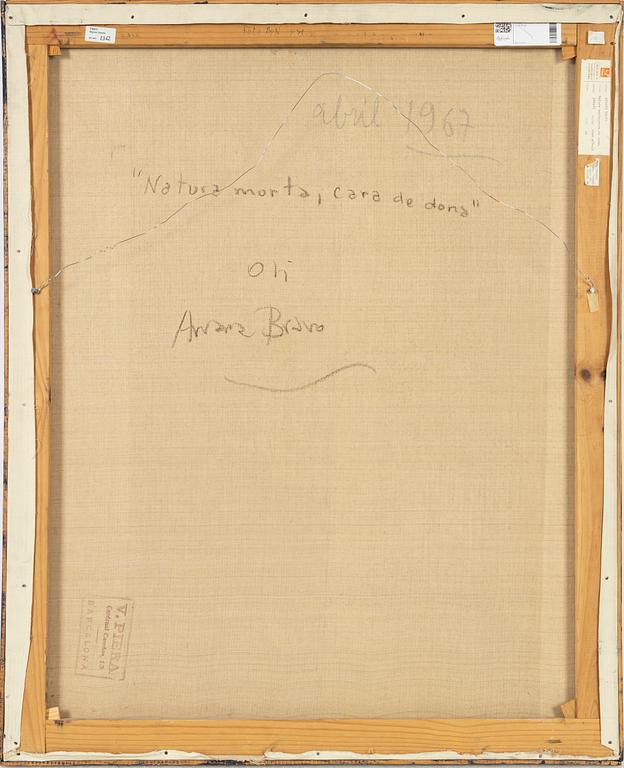 abril 1967
"Natura morta, cara de dona"
Oli
Bravo
V. PIERA
Cardenal Casañas, 15
BARCELONA
1342